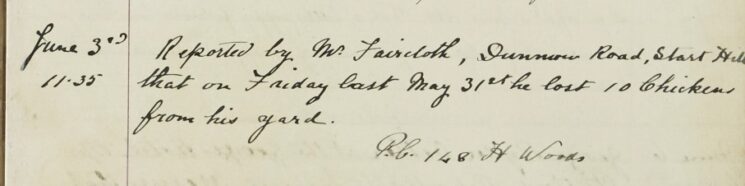 June 3rd
11.35
Reported by Mr Faircloth, Dunmow Road, Start Hill
that on Friday last May 31st he lost 10 Chickens
from his yard.
P.C. 148 H Woods